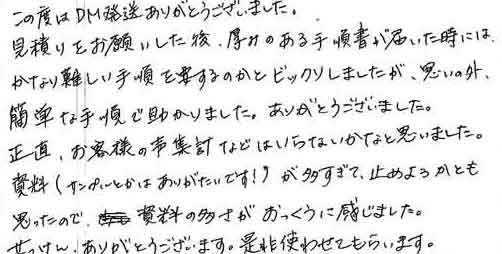 この度はDM発送ありがとうございました。
見積りをお願いした後、厚みのある手順書が届いた時には、
かなり難しい手順を要するのかとビックリしましたが、思いの外、
簡単な手順で助かりました。ありがとうございました。
正直、お客様の声集計などはいらないかなと思いました。
資料(サンプルとかはありがたいです!)が多すぎて、止めようかとも
思ったので、資料の多さがおっくうに感じました。
せっけん、ありがとうございます。是非使わせてもらいます。